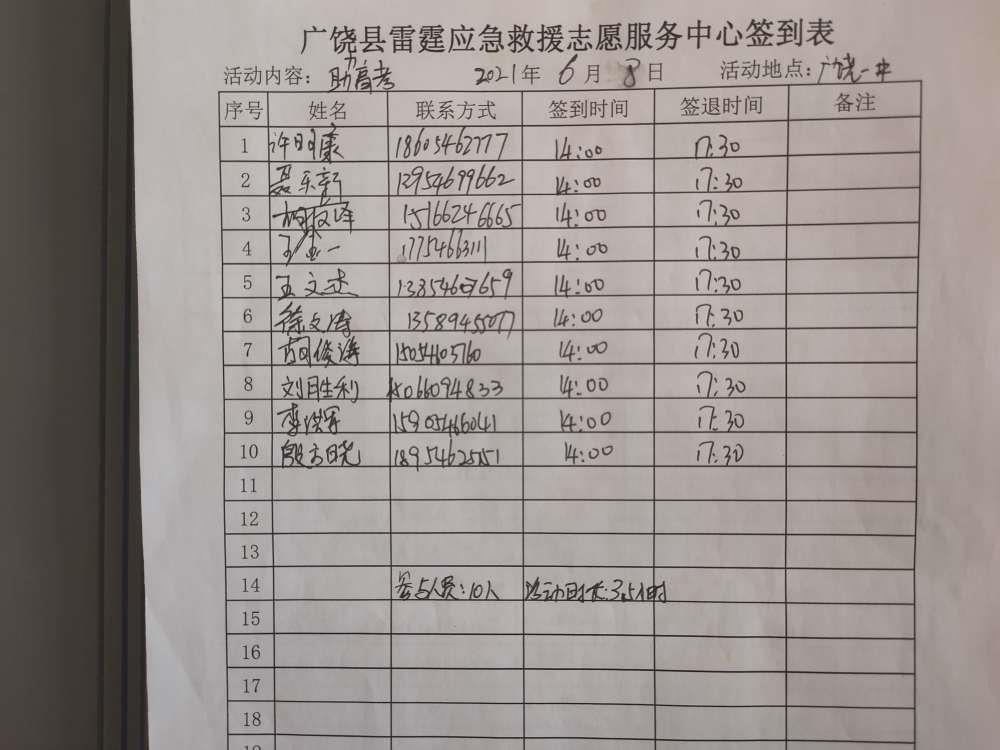 广饶县雷霆应急救援志愿服务中心签到表
活动内容：助高考 2021年 6月 8日 活动地点：广饶一中
序号 姓名 联系方式 签到时间 签退时间 备注
1 许明康 18605462777 14:00 17:30
2 聂乐新 13954699662 14:00 17:30
3 15166246665 14:00 17:30
4 17754663111 14:00 17:30
5 王文杰 14:00 17:30
6 徐文涛 13589455077 14:00 17:30
7 胡俊涛 15054603760 14:00 17:30
8 刘胜利 15066094833 14:00 17:30
9 李洪军 15905466041 14:00 17:30
10 殷方晓 18954625151 14:00 17:30
11
12
13
14 参与人员:10人 活动时长:3.5小时
15
16
17
18